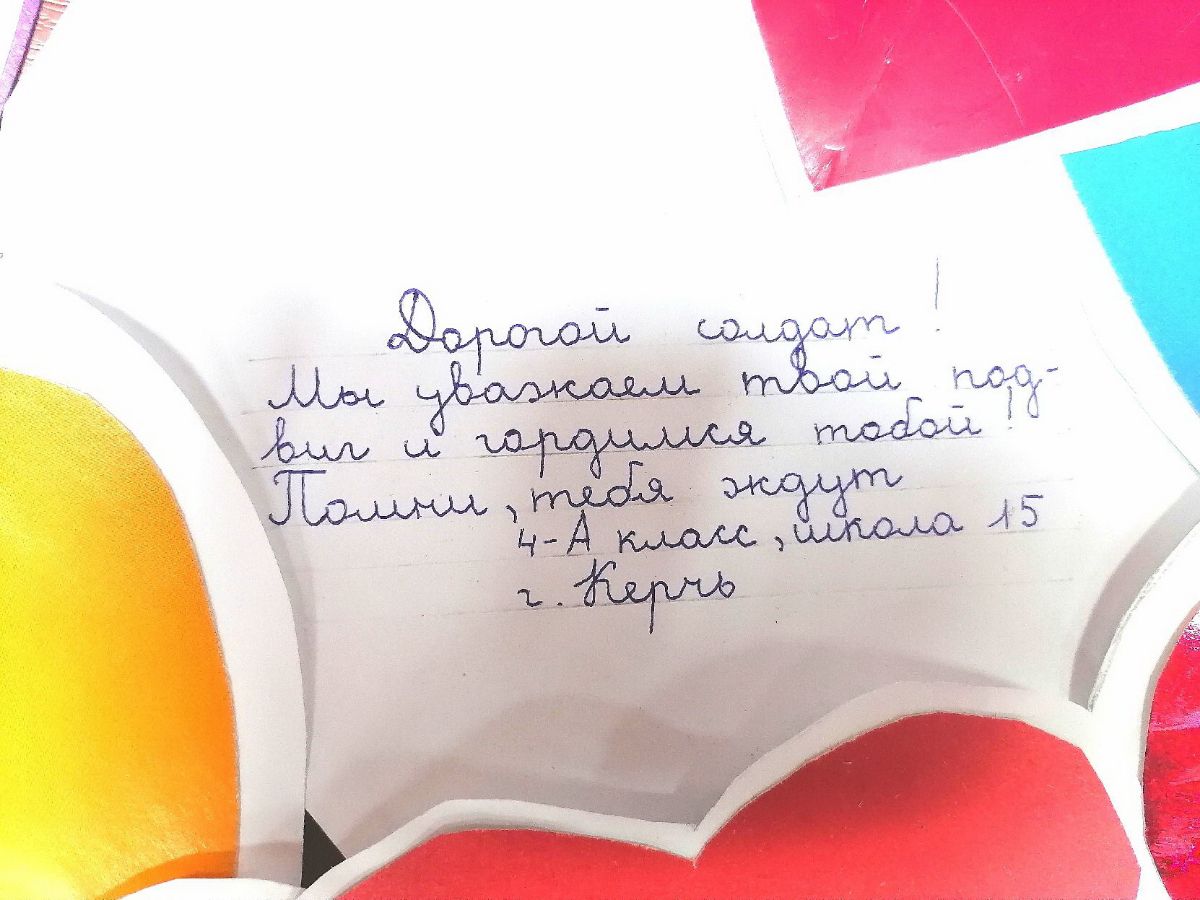 Дорогой солдат!
Мы уважаем твой под-
виг и гордимся тобой!
Помни, тебя ждут
4-А класс, школа 15
г. Керчь